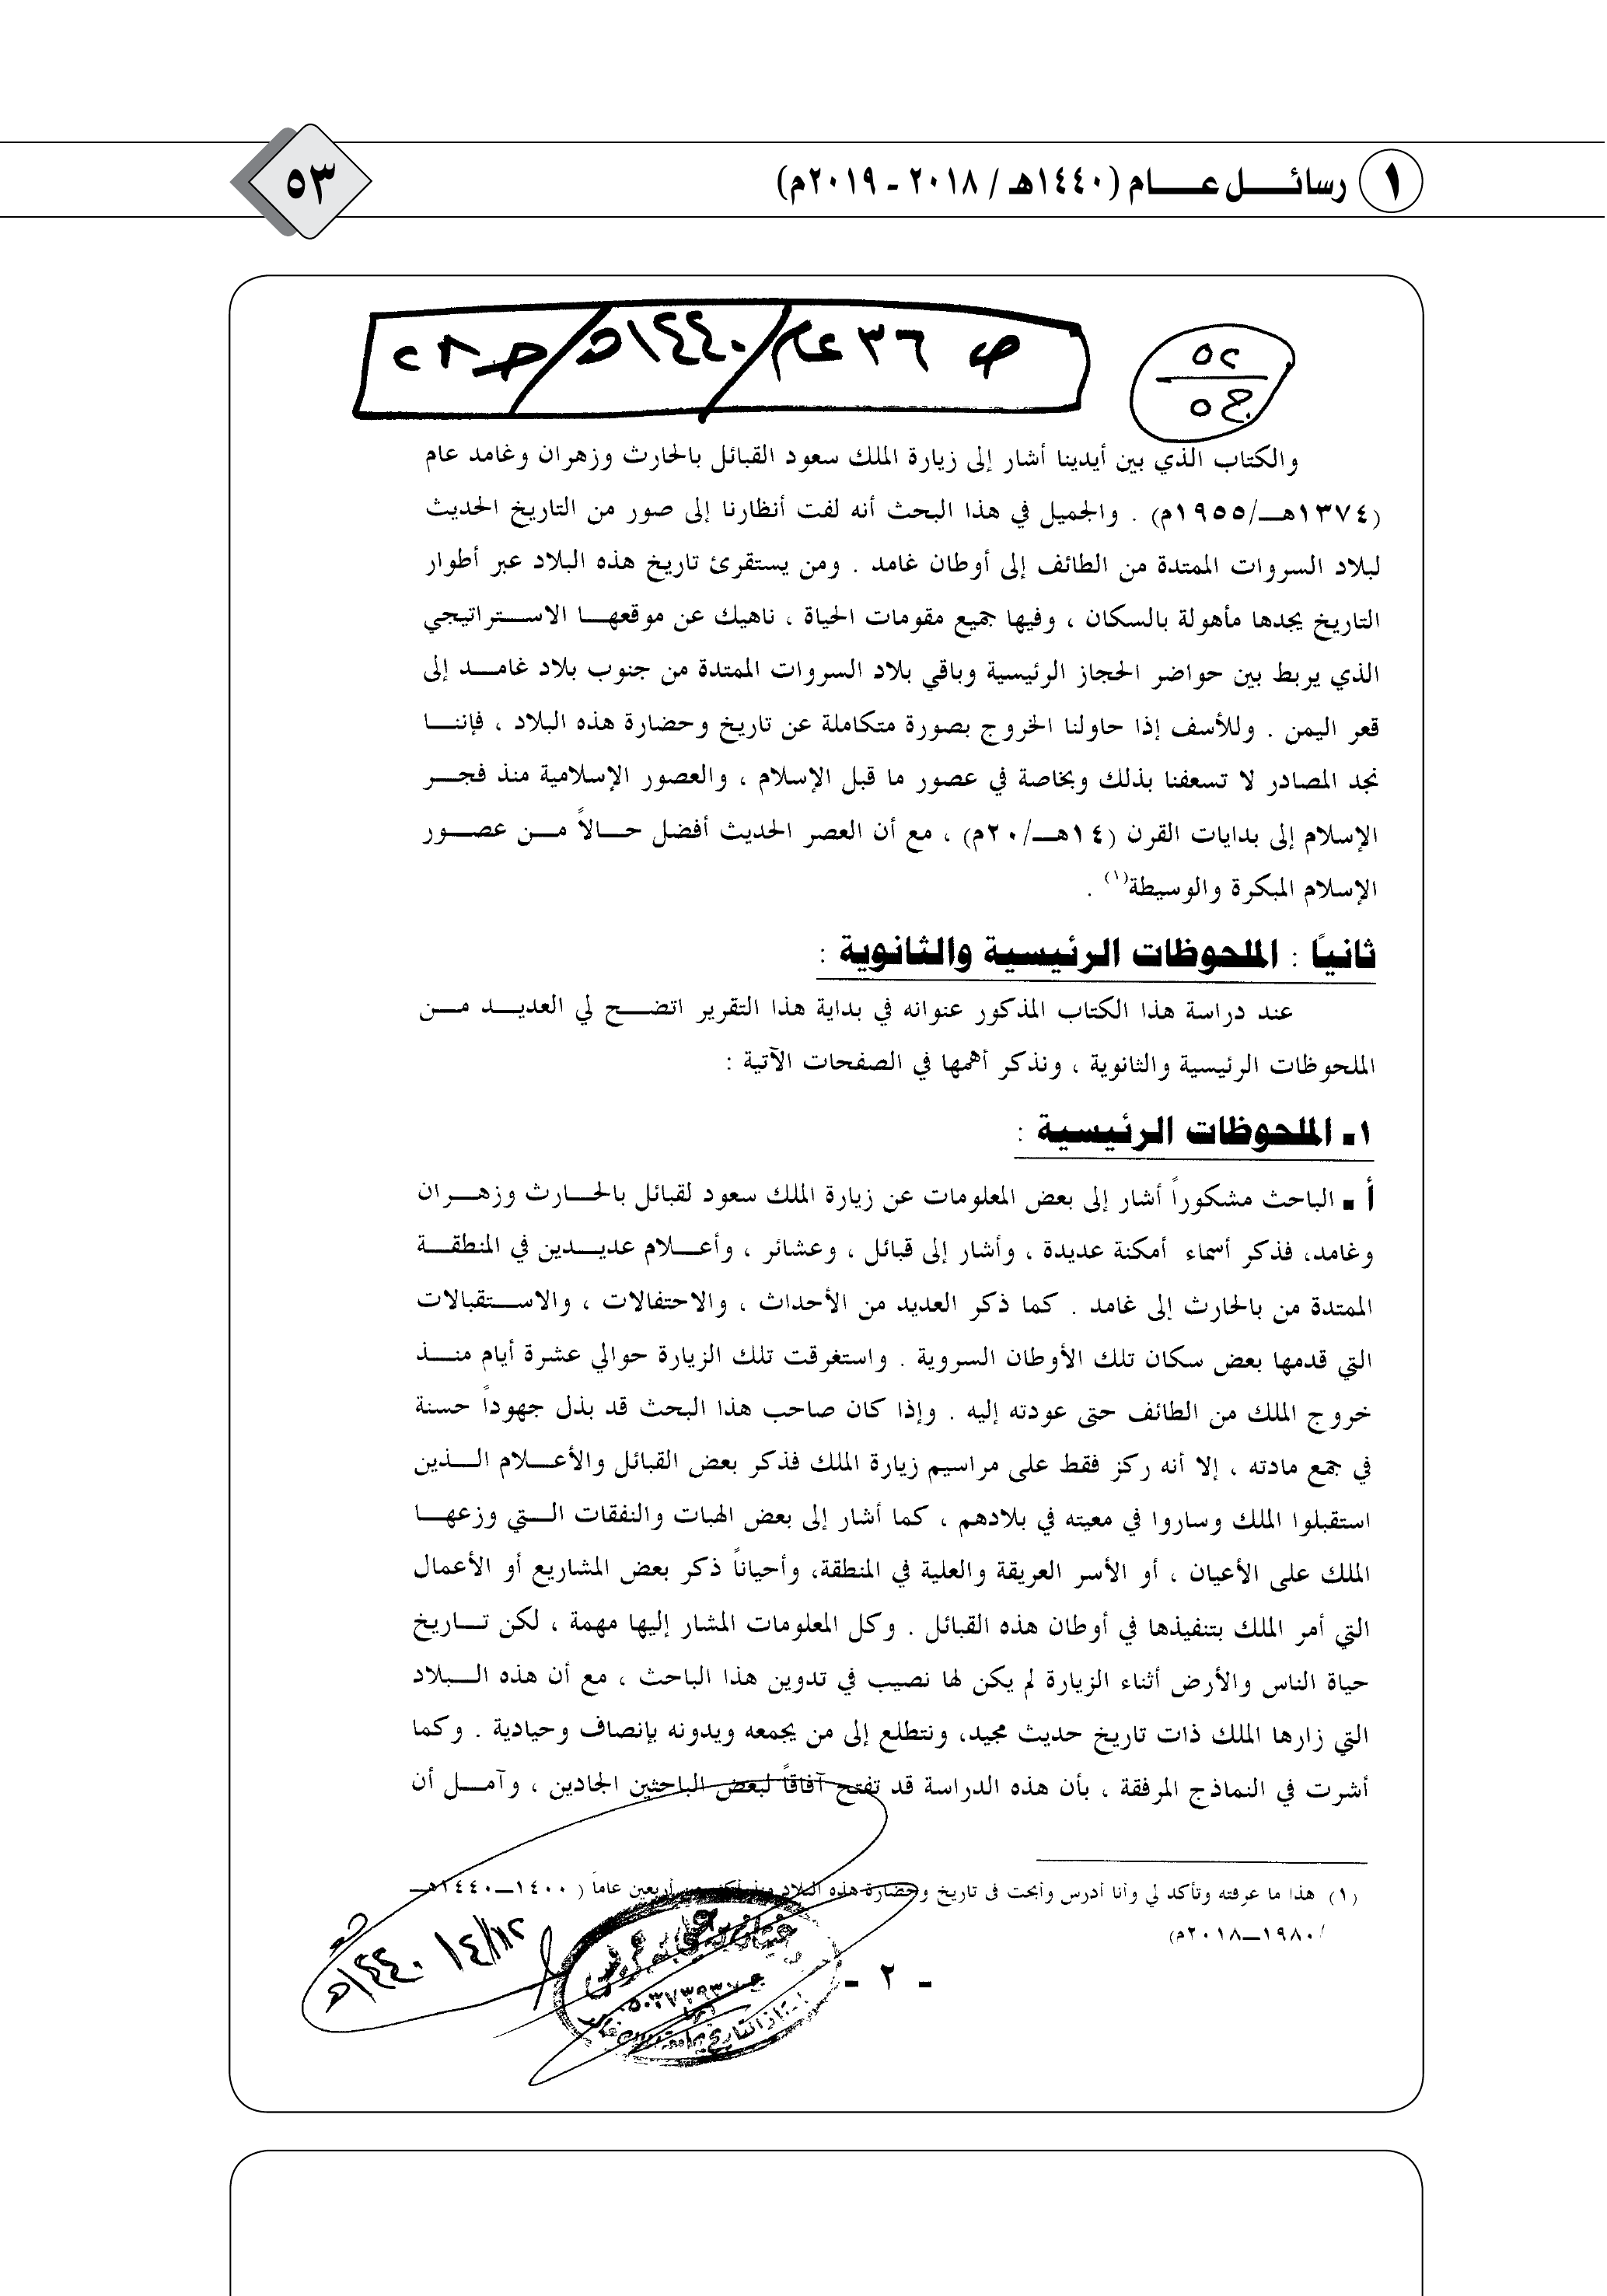 ١ رسائل عام (١٤٤٠هـ / ٢٠١٨ - ٢٠١٩م)
٥٣
ص ٣٦ عام / ١٤٤٠هـ / حـ ٢٨
٥٢
ج ٥
والكتاب الذي بين أيدينا أشار إلى زيارة الملك سعود القبائل بالحارث وزهران وغامد عام
(١٣٧٤هـ/١٩٥٥م) . والجميل في هذا البحث أنه لفت أنظارنا إلى صور من التاريخ الحديث
لبلاد السروات الممتدة من الطائف إلى أوطان غامد . ومن يستقرئ تاريخ هذه البلاد عبر أطوار
التاريخ يجدها مأهولة بالسكان ، وفيها جميع مقومات الحياة ، ناهيك عن موقعها الاستراتيجي
الذي يربط بين حواضر الحجاز الرئيسية وباقي بلاد السروات الممتدة من جنوب بلاد غامد إلى
قعر اليمن . وللأسف إذا حاولنا الخروج بصورة متكاملة عن تاريخ وحضارة هذه البلاد ، فإننا
نجد المصادر لا تسعفنا بذلك وبخاصة في عصور ما قبل الإسلام ، والعصور الإسلامية منذ فجر
الإسلام إلى بدايات القرن (١٤هـ/٢٠م) ، مع أن العصر الحديث أفضل حالاً من عصور
الإسلام المبكرة والوسيطة(١) .
ثانياً : الملحوظات الرئيسية والثانوية :
عند دراسة هذا الكتاب المذكور عنوانه في بداية هذا التقرير اتضح لي العديد من
الملحوظات الرئيسية والثانوية ، ونذكر أهمها في الصفحات الآتية :
١- الملحوظات الرئيسية :
أ - الباحث مشكوراً أشار إلى بعض المعلومات عن زيارة الملك سعود لقبائل بالحارث وزهران
وغامد، فذكر أسماء أمكنة عديدة ، وأشار إلى قبائل ، وعشائر ، وأعلام عديدين في المنطقة
الممتدة من بالحارث إلى غامد . كما ذكر العديد من الأحداث ، والاحتفالات ، والاستقبالات
التي قدمها بعض سكان تلك الأوطان السروية . واستغرقت تلك الزيارة حوالي عشرة أيام منذ
خروج الملك من الطائف حتى عودته إليه . وإذا كان صاحب هذا البحث قد بذل جهوداً حسنة
في جمع مادته ، إلا أنه ركز فقط على مراسيم زيارة الملك فذكر بعض القبائل والأعلام الذين
استقبلوا الملك وساروا في معيته في بلادهم ، كما أشار إلى بعض الهبات والنفقات التي وزعها
الملك على الأعيان ، أو الأسر العريقة والعلية في المنطقة، وأحياناً ذكر بعض المشاريع أو الأعمال
التي أمر الملك بتنفيذها في أوطان هذه القبائل . وكل المعلومات المشار إليها مهمة ، لكن تاريخ
حياة الناس والأرض أثناء الزيارة لم يكن لها نصيب في تدوين هذا الباحث ، مع أن هذه البلاد
التي زارها الملك ذات تاريخ حديث مجيد، ونتطلع إلى من يجمعه ويدونه بإنصاف وحيادية . وكما
أشرت في النماذج المرفقة ، بأن هذه الدراسة قد تفتح آفاقاً لبعض الباحثين الجادين ، وآمل أن
(١) هذا ما عرفته وتأكد لي وأنا أدرس وأبحث في تاريخ وحضارة هذه البلاد منذ أكثر من أربعين عاماً (١٤٠٠ـ١٤٤٠هـ
/١٩٨٠ـ٢٠١٨م)
- ٢ -
١٤٤٠/٤/١٢هـ